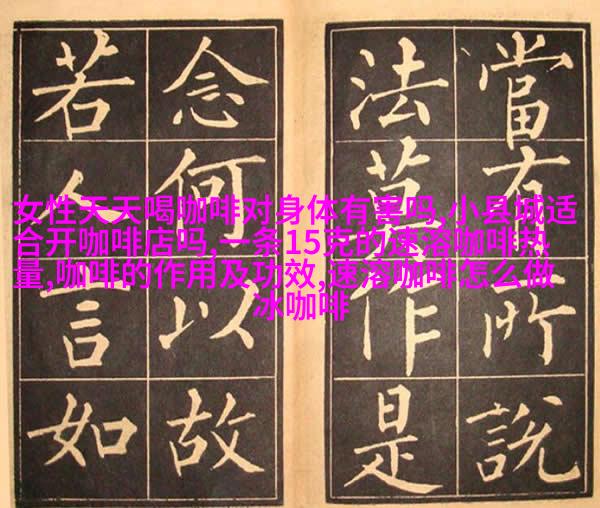 當有所說
法莫作是
念何以故
若人言如
女性天天喝咖啡对身体有害吗,小县城适
合开咖啡店吗,一条15克的速溶咖啡热
量,咖啡的作用及功效,速溶咖啡怎么做
冰咖啡